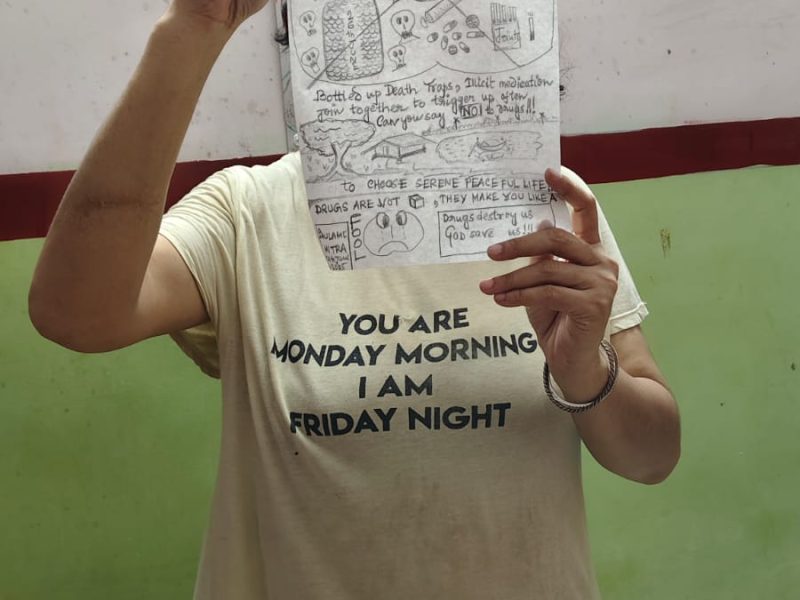 Joint
Bottled up Death Traps, Illicit medication
join together to trigger up often
Can you say "NO" to drugs!!!
to CHOOSE SERENE PEACEFUL LIFE
DRUGS ARE NOT , THEY MAKE YOU LIKE A
FOOL
Drugs destroy us
GOD save us!!!
MITRA
YOU ARE
MONDAY MORNING
I AM
FRIDAY NIGHT